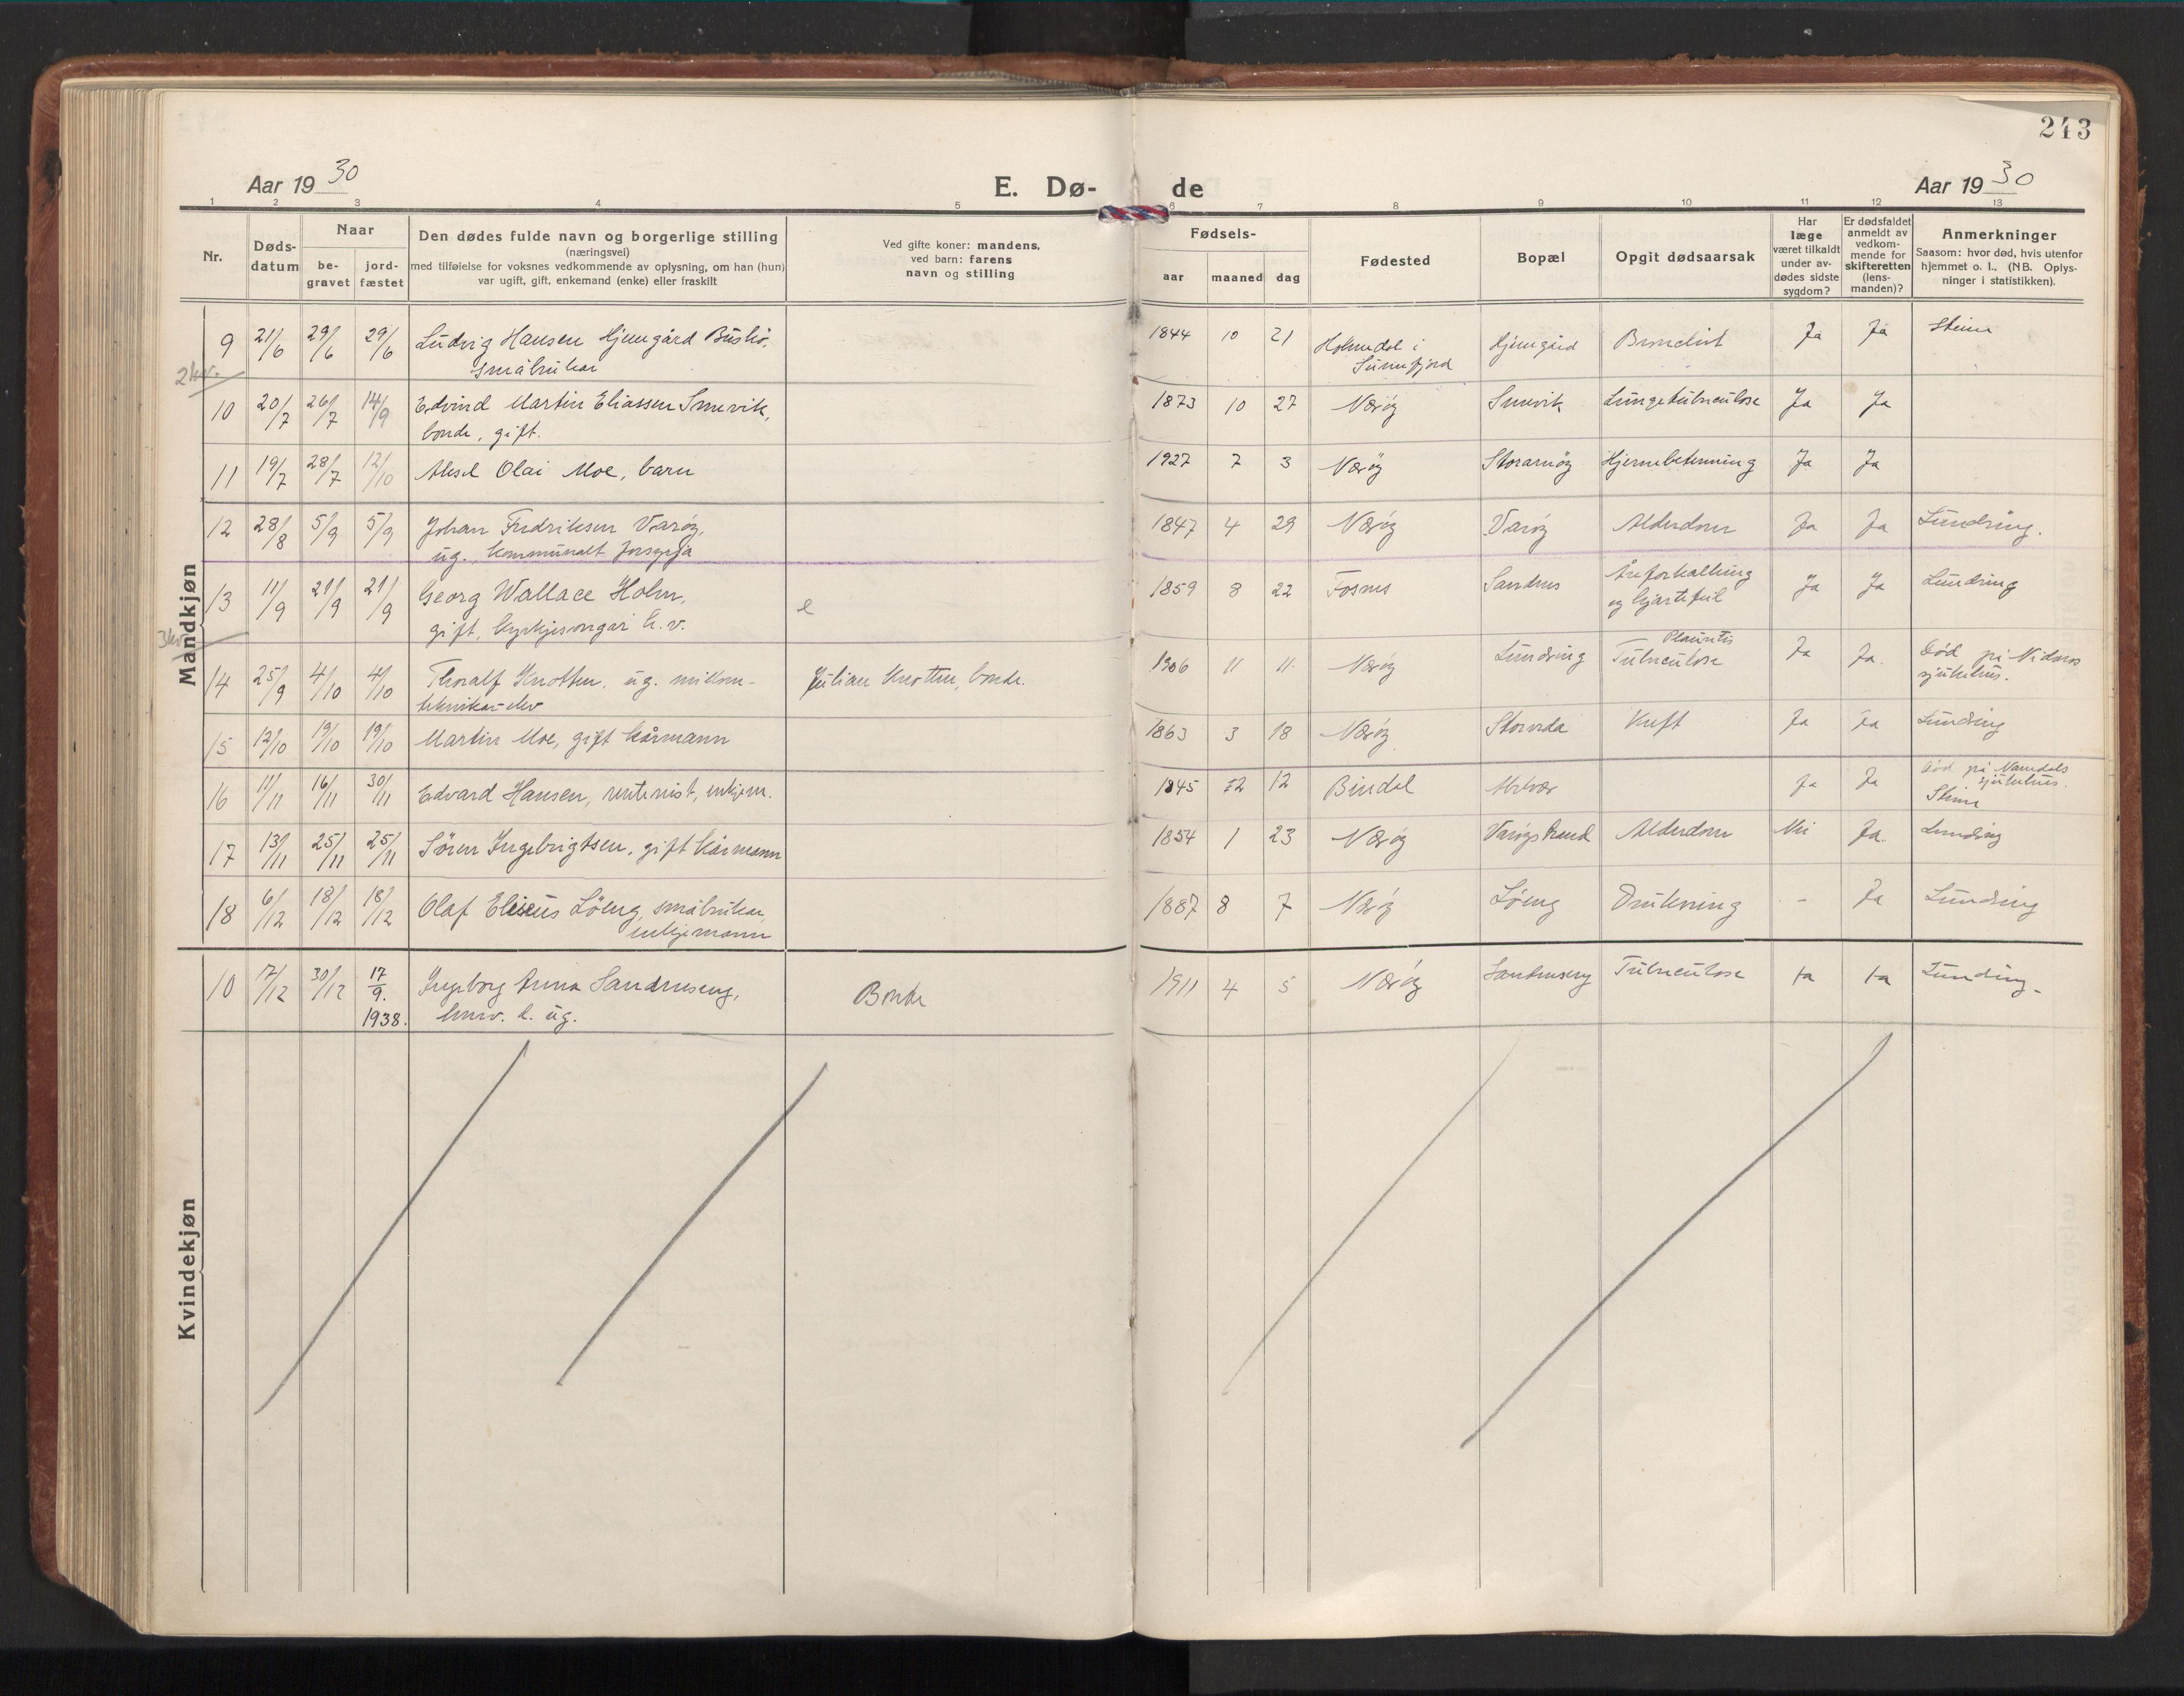 243
Aar 1930
E. Dø-
de
Aar 1930
1 2 3 4 5 6 7 8 9 10 11 12 13
Nr.
Døds-
datum
Naar
be-
gravet
jord-
fæstet
Den dødes fulde navn og borgerlige stilling
(næringsvei)
med tilføielse for voksnes vedkommende av oplysning, om han (hun)
var ugift, gift, enkemand (enke) eller fraskilt
Ved gifte koner: mandens,
ved barn: farens
navn og stilling
Fødsels-
aar maaned dag
Fødested
Bopæl
Opgit dødsaarsak
Har
læge
været tilkaldt
under av-
dødes sidste
sygdom?
Er dødsfaldet
anmeldt av
vedkom-
mende for
skifteretten
(lens-
manden)?
Anmerkninger
Saasom: hvor død, hvis utenfor
hjemmet o. l.. (NB. Oplys-
ninger i statistikken).
Mandkjøn
9 21/6 29/6 29/6 Ludvig Hansen Hjemgård
småbrukar
1844 10 21 Holmedal i
Sunnfjord
Hjemgård Ja Ja Steine
2 kv.
10 20/7 26/7 14/9 Edvind Martin Eliassen Smevik,
bonde, gift.
1873 10 27 Nærøy Smevik Lungetuberculose Ja Ja
11 19/7 28/7 12/10 Aksel Olai Moe, barn
1927 7 3 Nærøy Hjernebetenning Ja Ja
12 28/8 5/9 5/9 Johan Fredriksen Varøy,
ug., kommunalt forsyrja
1847 4 29 Nærøy Varøy Alderdom Ja Ja Lundring.
13 11/9 21/9 21/9 Georg Wallace Holm,
gift, kyrkjesongar
1859 8 22 Fosnes Sandnes Åreforkalking
og hjartefeil
Ja Ja Lundring
3 kv.
14 25/9 4/10 4/10 Thoralf Knotten, ug.
Julian Knotten, bonde.
1906 11 11 Nærøy Lundring
Tuberculose
Ja Ja. Død på Nidaros
sjukehus.
15 12/10 19/10 19/10 Martin Moe, gift kårmann
1863 3 18 Nærøy Kreft Ja Ja Lundring
16 11/11 16/11 30/11 Edvard Hansen, rentenist, enkjem.
1845 12 12 Bindal Ja Ja Død på Namdals
sjukehus.
Steine
17 13/11 25/11 25/11 Søren Ingebrigtsen, gift kårmann
1854 1 23 Nærøy Varøystrand Alderdom Nei Ja. Lundring
18 6/12 18/12 18/12 Olaf Eliseus Löeng, småbrukar,
enkjemann
1887 8 7 Nærøy Löeng Drukning - Ja Lundring
Kvindekjøn
10 17/12 30/12 17/9. Ingeborg Anna Sandneseng,
1938. ug.
Bonde
1911 4 5 Nærøy Sandneseng Tuberculose Ja Ja Lundring.